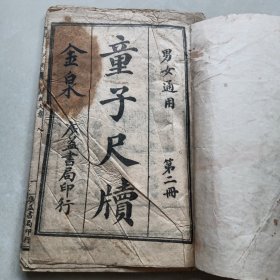 男女通用
第二冊
童子尺牘
金泉
成益書局印行